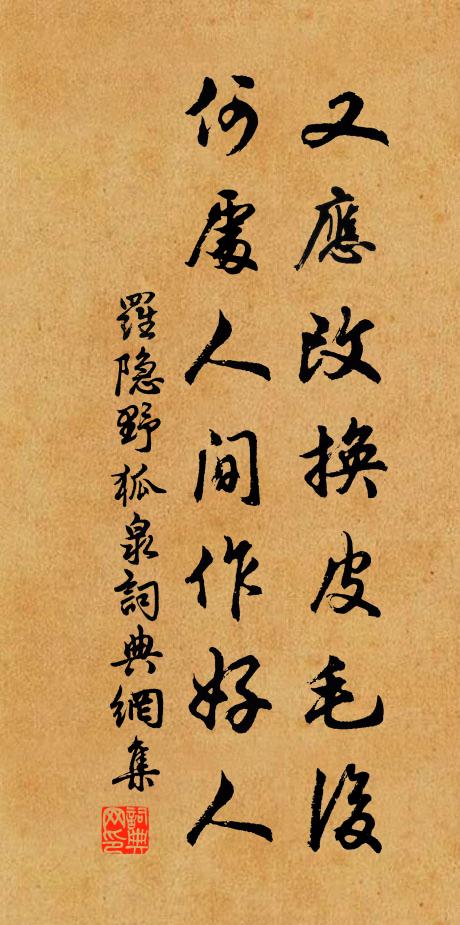 又應改換皮毛後
何處人間作好人
羅隐野狐泉詞典網集
詞典网印